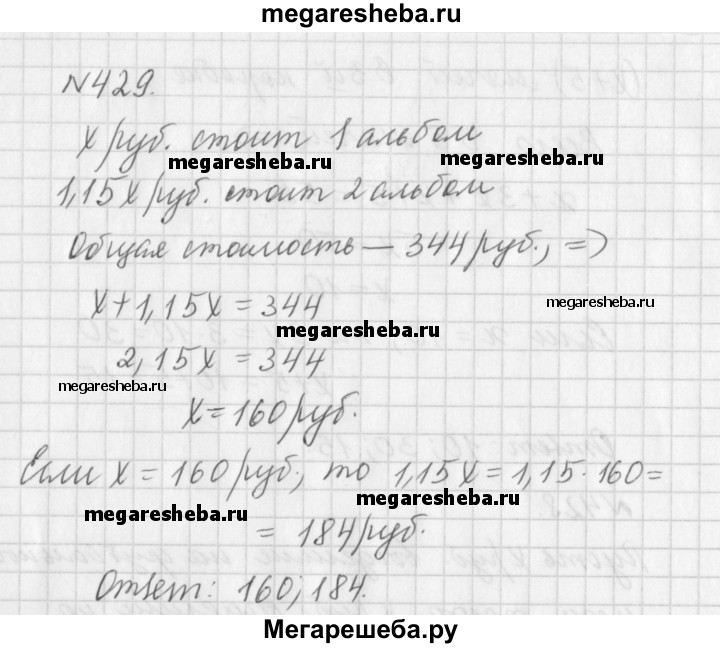 megaresheba.ru
№429.
x руб. стоит 1 альбом
megaresheba.ru megaresheba.ru
1,15x руб. стоит 2 альбом
Общая стоимость — 344 руб., =>
x+1,15x=344
megaresheba.ru
megaresheba.ru
2,15x=344
megaresheba.ru
x=160 руб.
Если x=160 руб., то 1,15x=1,15·160=
megaresheba.ru
megaresheba.ru
=184 руб.
Ответ: 160; 184.
Мегарешеба.ру